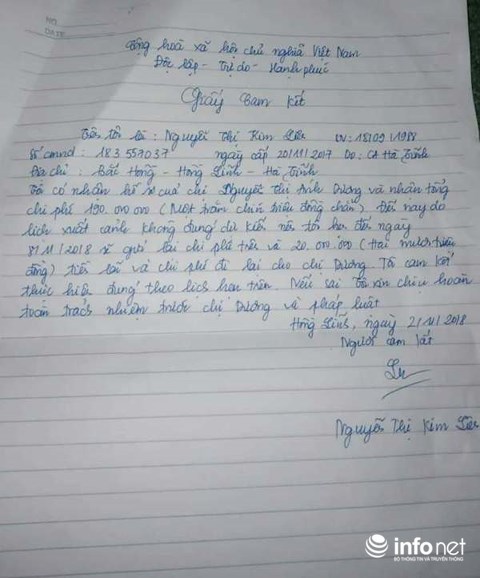 NO.
DATE
Cộng hoà xã hội chủ nghĩa Việt Nam
Độc lập - Tự do - Hạnh phúc
Giấy Cam kết
Tên tôi là : Nguyễn Thị Kim Liên SN: 18/09/1988
Số cmnd : 183557037 ngày cấp 20/11/2017 Do: CA Hà Tĩnh
Địa chỉ : Bắc Hồng - Hồng Lĩnh - Hà Tĩnh
Tôi có nhận hồ sơ của chị Nguyễn Thị Ánh Dương và nhận tổng
chi phí 190.000.000 (Một trăm chín triệu đồng chẵn). Đến nay do
lịch xuất cảnh không đúng dự kiến nên tôi hẹn đến ngày
8/11/2018 sẽ gửi lại chi phí trên và 20.000.000 (Hai mươi triệu
đồng) tiền lãi và chi phí đi lại cho chị Dương. Tôi cam kết
thực hiện đúng theo lịch hẹn trên. Nếu sai tôi xin chịu hoàn
toàn trách nhiệm trước chị Dương và pháp luật
Hồng Lĩnh, ngày 2/11/2018
Người cam kết
Nguyễn Thị Kim Liên
infonet
BỘ THÔNG TIN VÀ TRUYỀN THÔNG